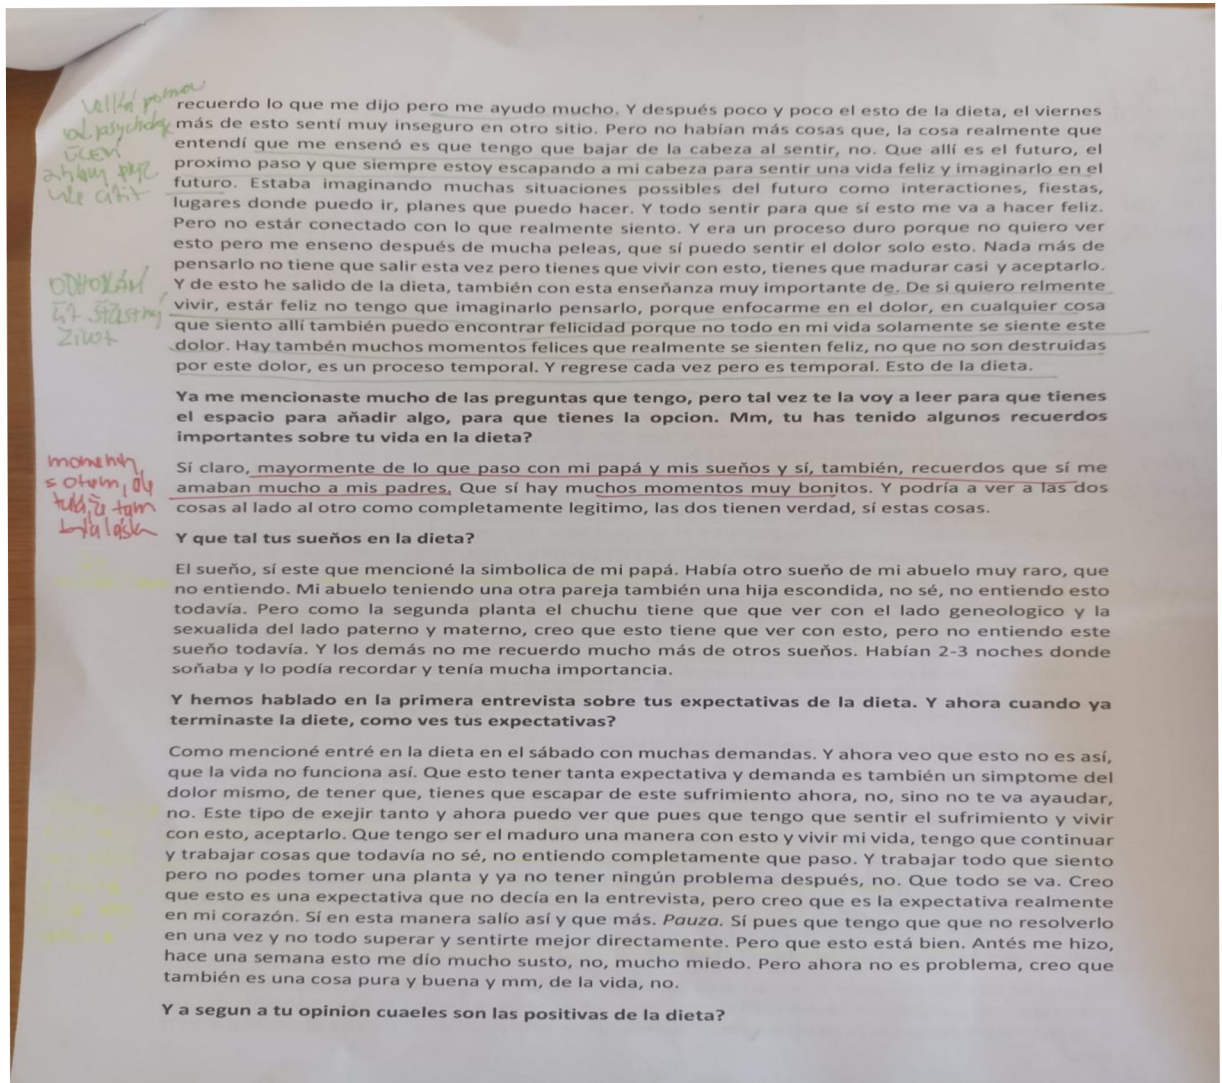 velká pomoc
od psycholog
učení
recuerdo lo que me dijo pero me ayudo mucho. Y después poco y poco el esto de la dieta, el viernes
más de esto sentí muy inseguro en otro sitio. Pero no habían más cosas que, la cosa realmente que
entendí que me ensenó es que tengo que bajar de la cabeza al sentir, no. Que allí es el futuro, el
proximo paso y que siempre estoy escapando a mi cabeza para sentir una vida feliz y imaginarlo en el
futuro. Estaba imaginando muchas situaciones possibles del futuro como interactiones, fiestas,
lugares donde puedo ir, planes que puedo hacer. Y todo sentir para que sí esto me va a hacer feliz.
Pero no estár conectado con lo que realmente siento. Y era un proceso duro porque no quiero ver
esto pero me enseno después de mucha peleas, que sí puedo sentir el dolor solo esto. Nada más de
pensarlo no tiene que salir esta vez pero tienes que vivir con esto, tienes que madurar casi y aceptarlo.
ODHODLÁNÍ
žít šťastný
život
Y de esto he salido de la dieta, también con esta enseñanza muy importante de. De si quiero relmente
vivir, estár feliz no tengo que imaginarlo pensarlo, porque enfocarme en el dolor, en cualquier cosa
que siento allí también puedo encontrar felicidad porque no todo en mi vida solamente se siente este
dolor. Hay tambén muchos momentos felices que realmente se sienten feliz, no que no son destruidas
por este dolor, es un proceso temporal. Y regrese cada vez pero es temporal. Esto de la dieta.
Ya me mencionaste mucho de las preguntas que tengo, pero tal vez te la voy a leer para que tienes
el espacio para añadir algo, para que tienes la opcion. Mm, tu has tenido algunos recuerdos
importantes sobre tu vida en la dieta?
momenty
s otcem, ale
také, že tam
byla láska
Sí claro, mayormente de lo que paso con mi papá y mis sueños y sí, también, recuerdos que sí me
amaban mucho a mis padres. Que sí hay muchos momentos muy bonitos. Y podría a ver a las dos
cosas al lado al otro como completamente legitimo, las dos tienen verdad, sí estas cosas.
Y que tal tus sueños en la dieta?
El sueño, sí este que mencioné la simbolica de mi papá. Había otro sueño de mi abuelo muy raro, que
no entiendo. Mi abuelo teniendo una otra pareja también una hija escondida, no sé, no entiendo esto
todavía. Pero como la segunda planta el chuchu tiene que que ver con el lado geneologico y la
sexualida del lado paterno y materno, creo que esto tiene que ver con esto, pero no entiendo este
sueño todavía. Y los demás no me recuerdo mucho más de otros sueños. Habían 2-3 noches donde
soñaba y lo podía recordar y tenía mucha importancia.
Y hemos hablado en la primera entrevista sobre tus expectativas de la dieta. Y ahora cuando ya
terminaste la diete, como ves tus expectativas?
Como mencioné entré en la dieta en el sábado con muchas demandas. Y ahora veo que esto no es así,
que la vida no funciona así. Que esto tener tanta expectativa y demanda es también un simptome del
dolor mismo, de tener que, tienes que escapar de este sufrimiento ahora, no, sino no te va ayaudar,
no. Este tipo de exejir tanto y ahora puedo ver que pues que tengo que sentir el sufrimiento y vivir
con esto, aceptarlo. Que tengo ser el maduro una manera con esto y vivir mi vida, tengo que continuar
y trabajar cosas que todavía no sé, no entiendo completamente que paso. Y trabajar todo que siento
pero no podes tomer una planta y ya no tener ningún problema después, no. Que todo se va. Creo
que esto es una expectativa que no decía en la entrevista, pero creo que es la expectativa realmente
en mi corazón. Sí en esta manera salío así y que más. Pauza. Sí pues que tengo que que no resolverlo
en una vez y no todo superar y sentirte mejor directamente. Pero que esto está bien. Antés me hizo,
hace una semana esto me dío mucho susto, no, mucho miedo. Pero ahora no es problema, creo que
también es una cosa pura y buena y mm, de la vida, no.
Y a segun a tu opinion cuaeles son las positivas de la dieta?